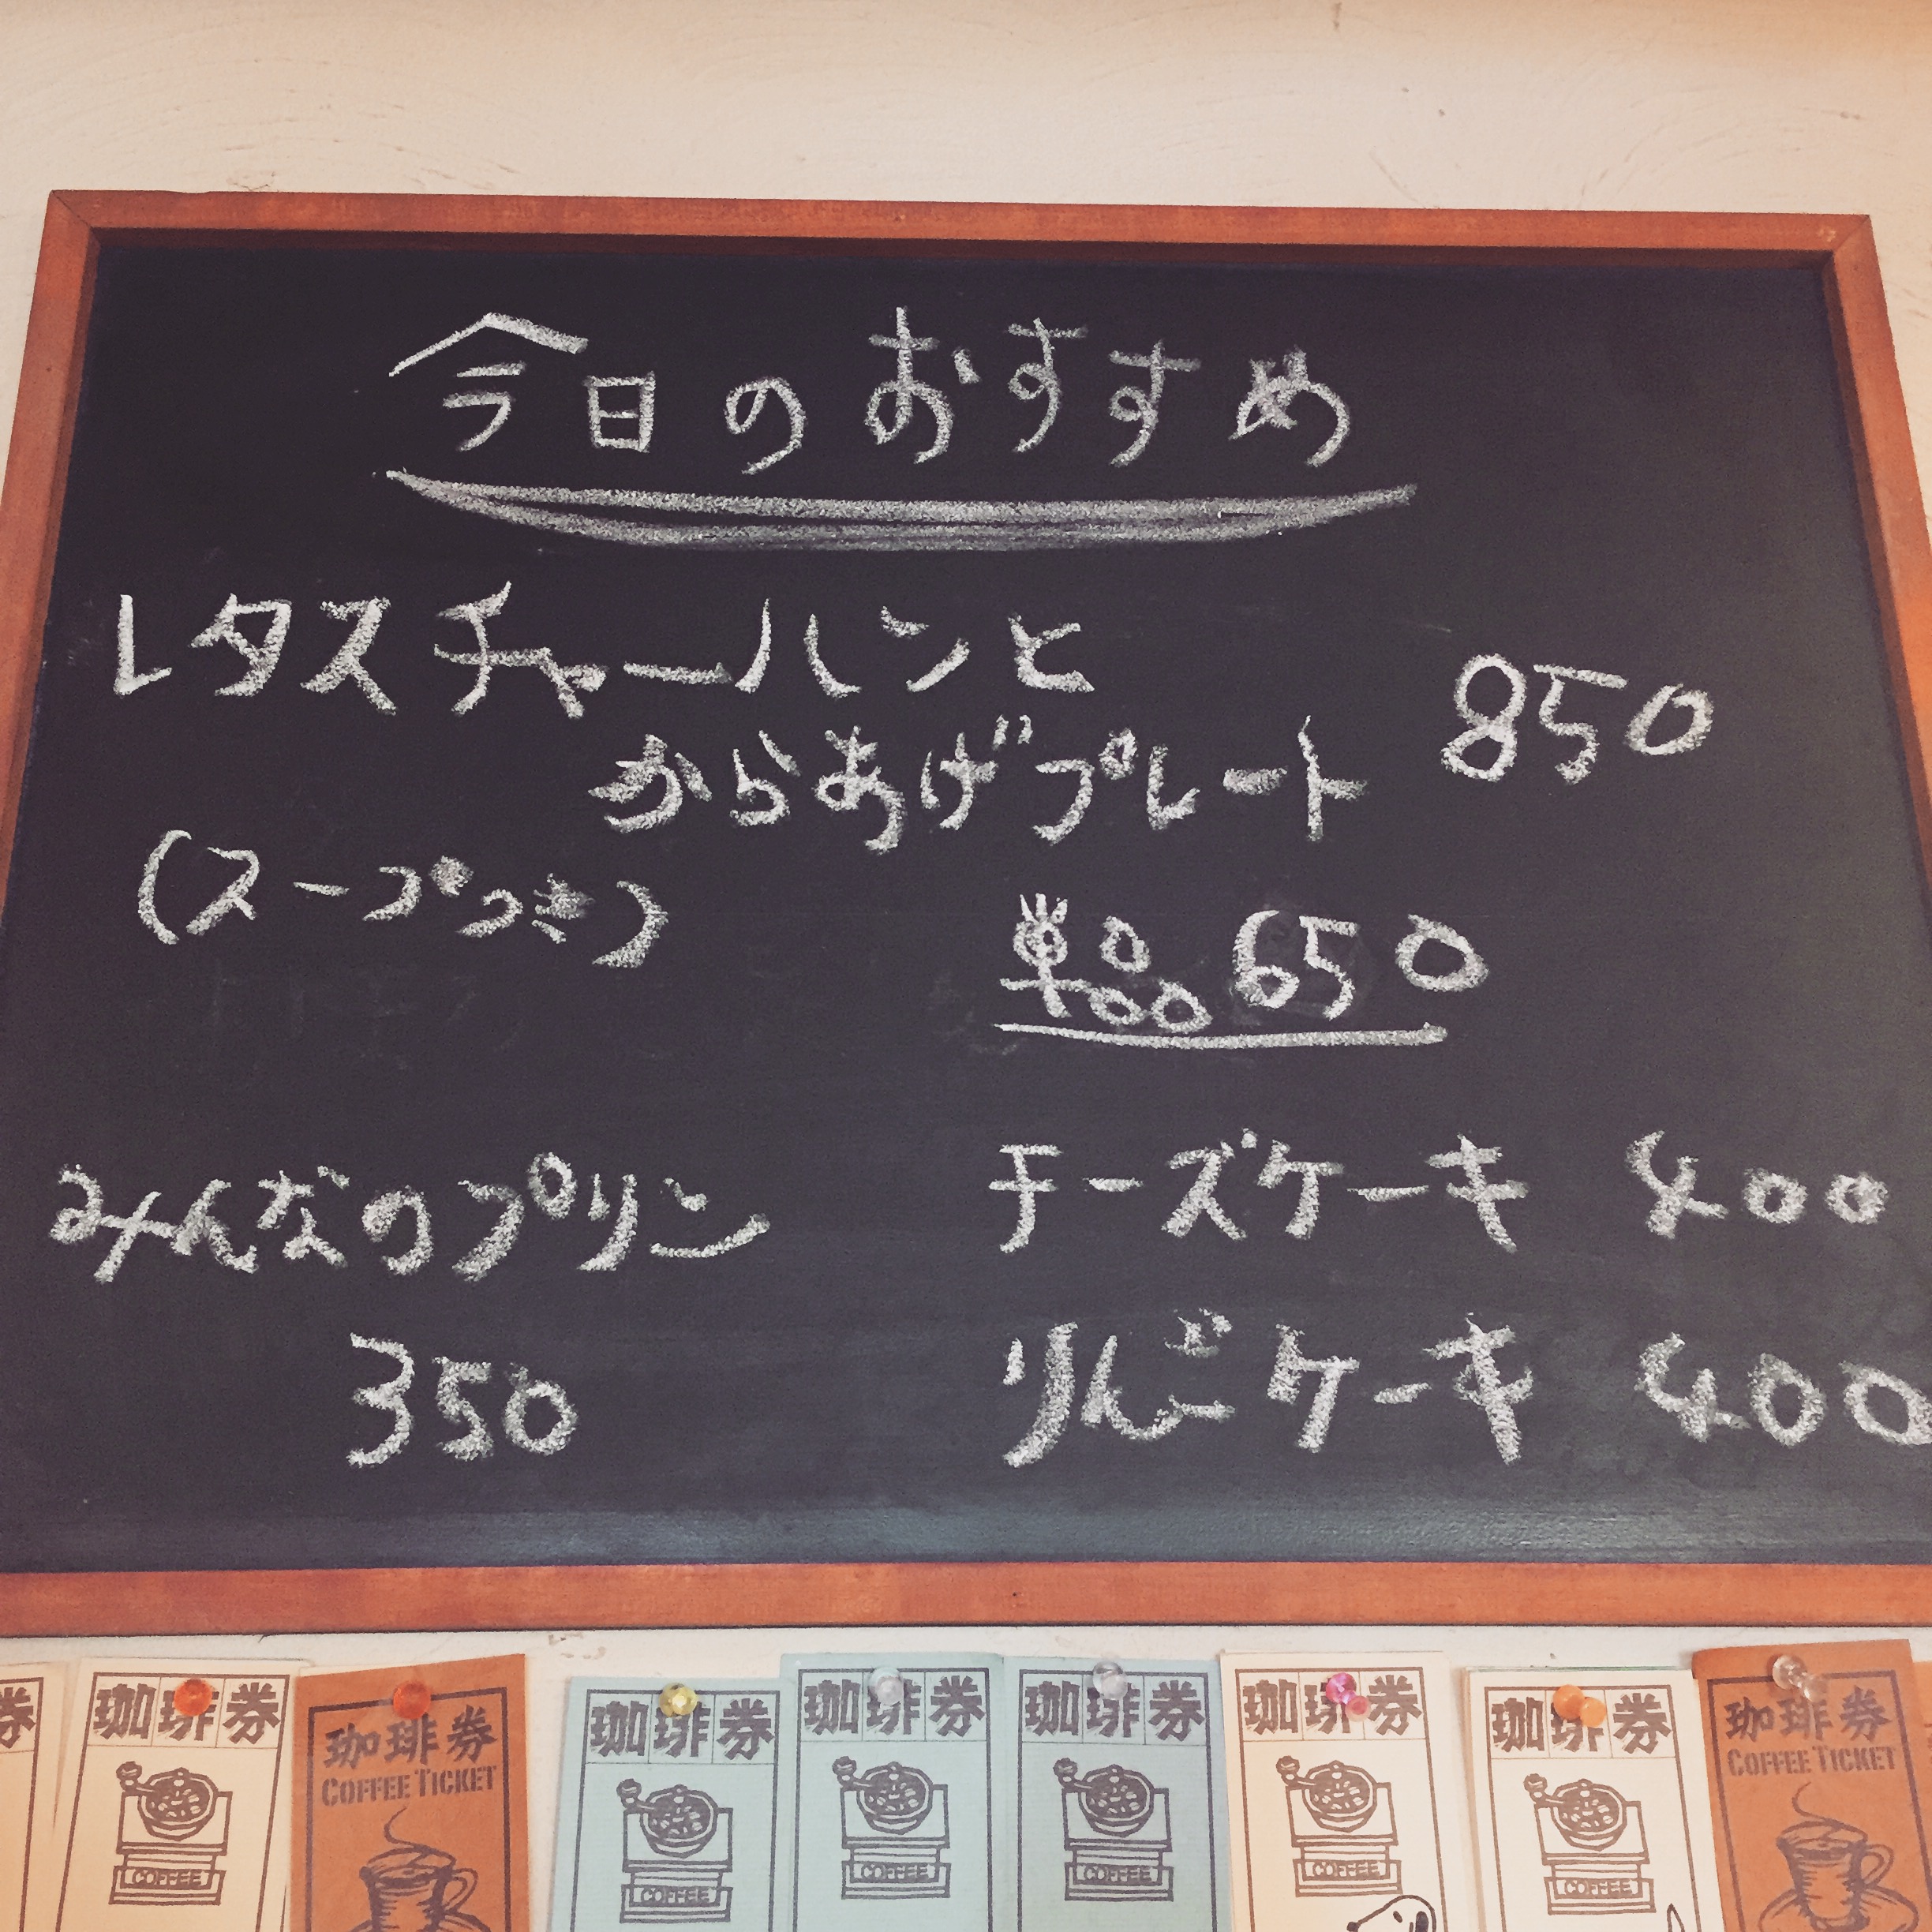 今日のおすすめ
レタスチャーハンと
からあげプレート 850
(スープつき)
単品 650
みんなのプリン
350
チーズケーキ 400
りんごケーキ 400
券
珈琲券
COFFEE
珈琲券
COFFEE TICKET
珈琲券
COFFEE
珈琲券
COFFEE
珈琲券
COFFEE
珈琲券
COFFEE
珈琲券
COFFEE
珈琲券
COFFEE TICKET